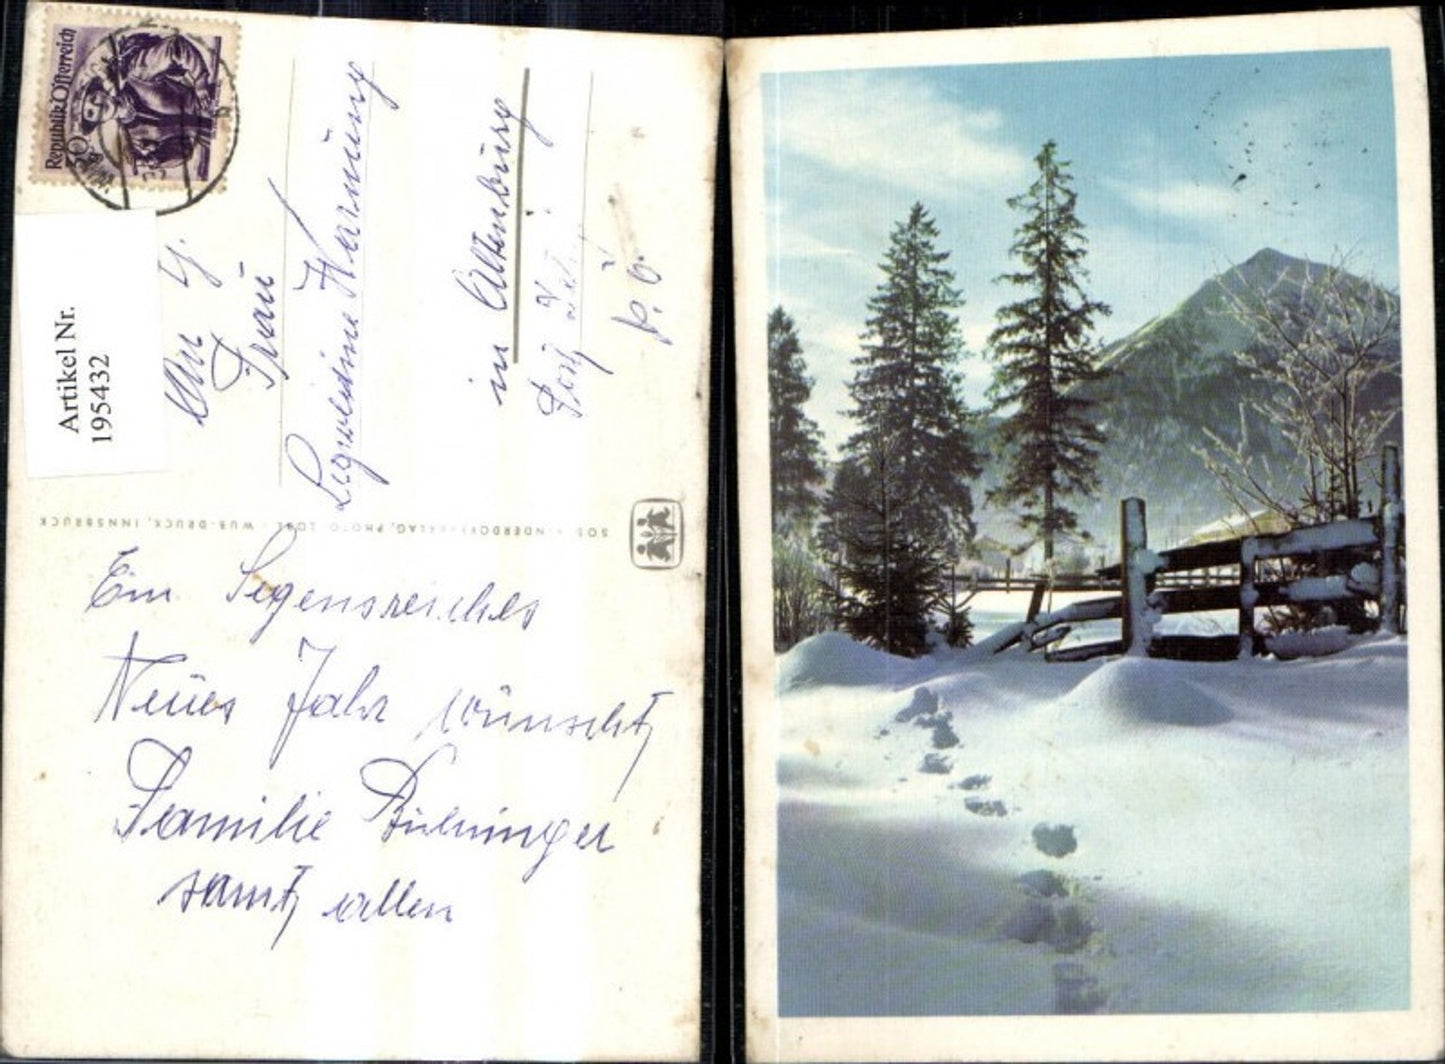 Republik Österreich
Artikel Nr.
195432
An
Frau
Leopoldine Hornung
in Altenburg
Post
P. b.
SOS-KINDERDORFVERLAG, PHOTO WUB-DRUCK, INNSBRUCK
Ein Segensreiches
Neues Jahr wünscht
Familie
samt allen